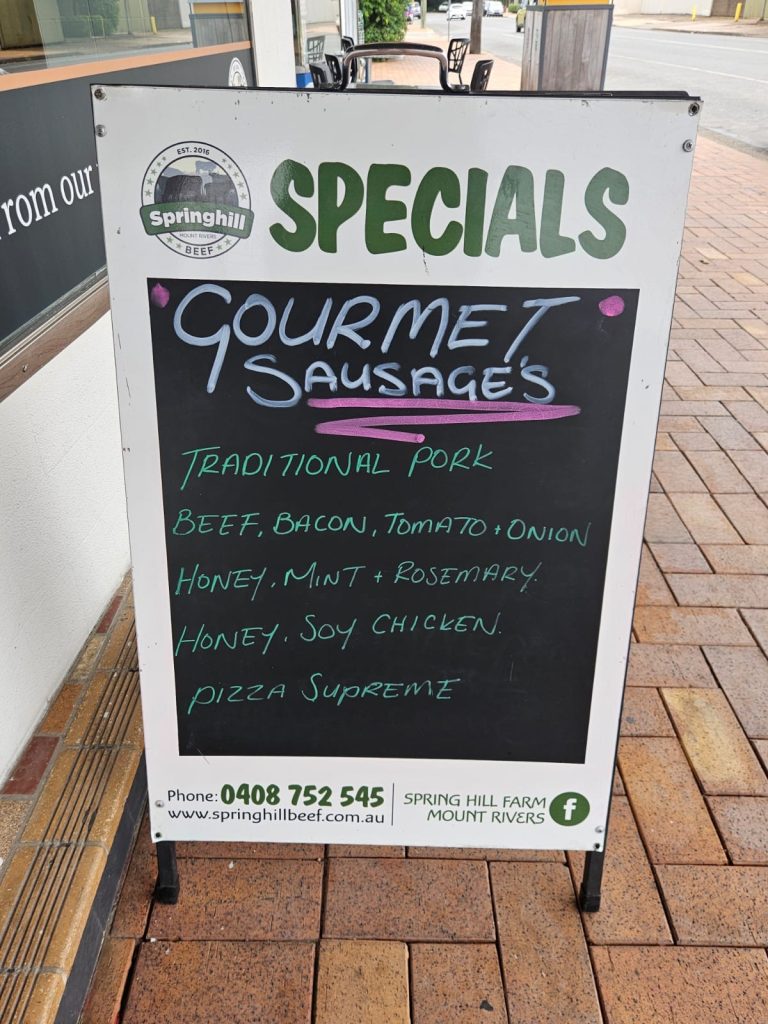 from our
EST. 2016
Springhill
MOUNT RIVERS
BEEF
SPECIALS
GOURMET
SAUSAGE'S
TRADITIONAL PORK
BEEF, BACON, TOMATO + ONION
HONEY, MINT + ROSEMARY.
HONEY, SOY CHICKEN.
PIZZA SUPREME
Phone: 0408 752 545
www.springhillbeef.com.au
SPRING HILL FARM
MOUNT RIVERS
f